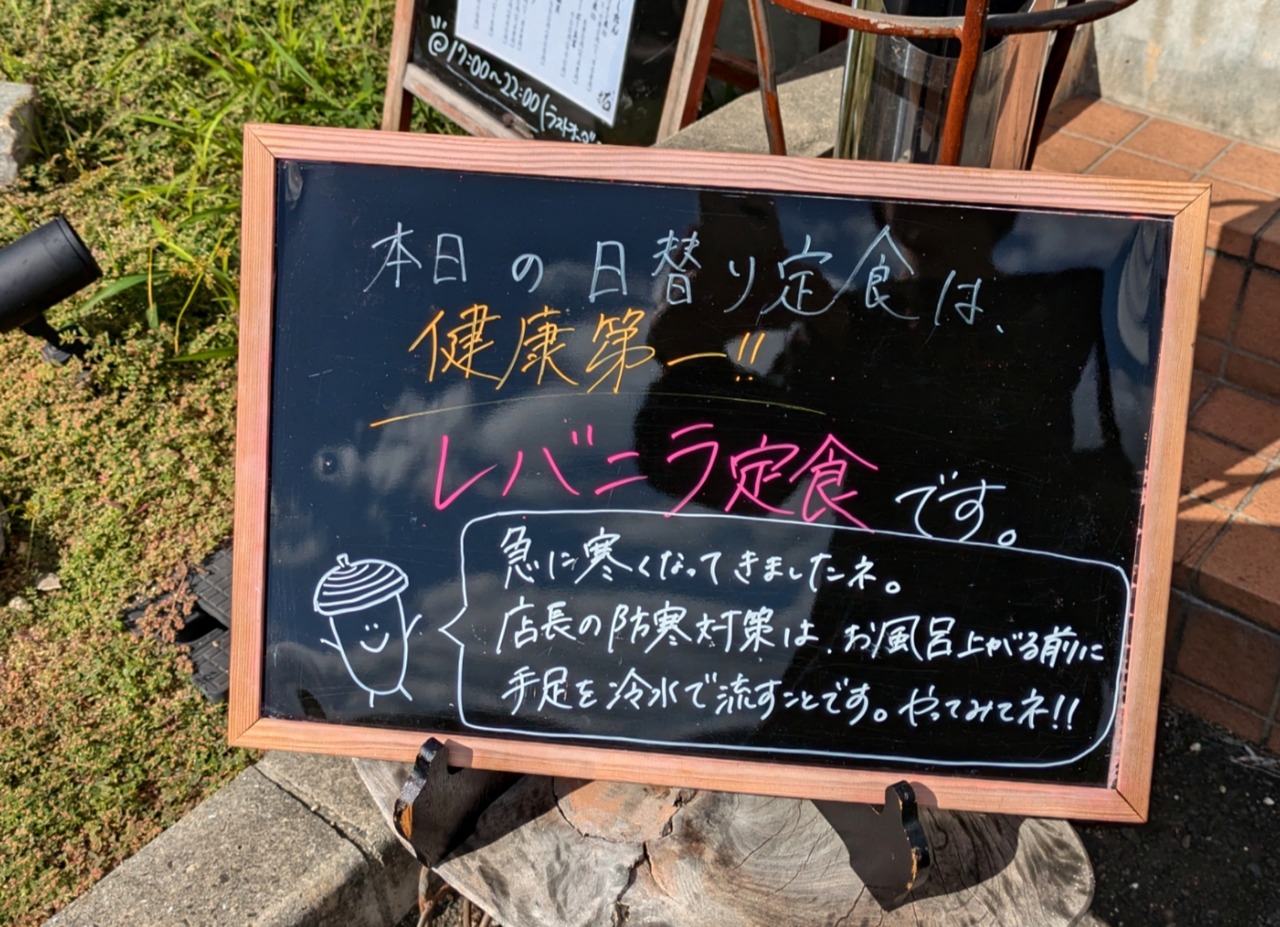 @17:00〜22:00(ラストオーダー
本日の日替り定食は、
健康第一!!
レバニラ定食です。
急に寒くなってきましたネ。
店長の防寒対策は、お風呂上がる前に
手足を冷水で流すことです。やってみてネ!!